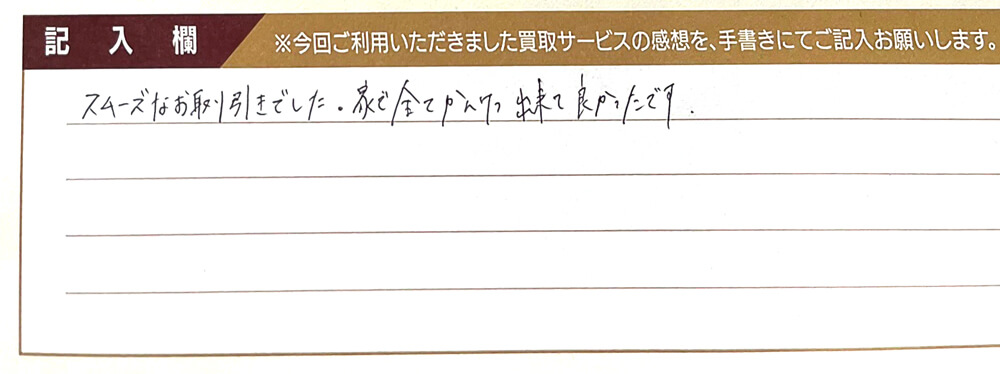 記入欄
※今回ご利用いただきました買取サービスの感想を、手書きにてご記入お願いします。
スムーズなお取り引きでした。家で全てかんけつ出来て良かったです.